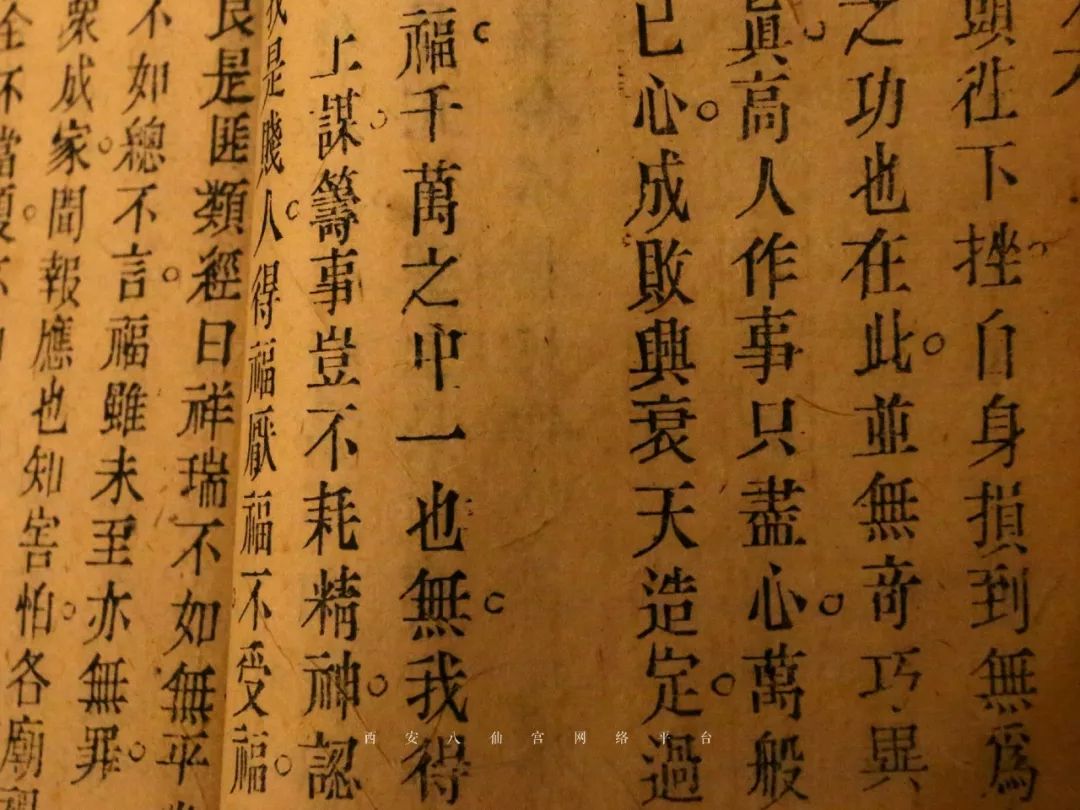 頭徃下挫自身損到無爲
之功也在此並無奇巧異
眞高人作事只盡心萬般
已心成敗興衰天造定過
福千萬之中一也無我得
上謀籌事豈不耗精神認
我是賤人得福厭福不受福
良是匪類經曰祥瑞不如無平
不如總不言福雖未至亦無罪
衆成家聞報應也知害怕各廟
全不當
西安八仙宫网络平台